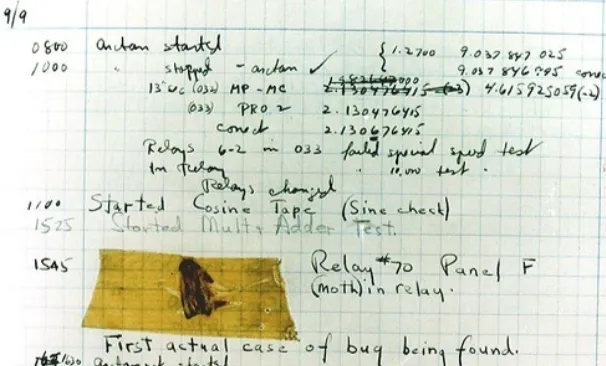 9/9
0800 arctan started { 1.2700 9.037 847 025
1000 " stopped - arctan ✓ 9.037 846 995 correct
13"uc (032) MP-MC 2.130476415 (-3) 4.615925059(-2)
(033) PRO 2 2.130476415
correct 2.130676415
Relays 6-2 in 033 failed special speed test
in Relay " 10,000 test .
Relays changed
1100 Started Cosine Tape (Sine check)
1525 Started Mult+Adder Test.
1545 Relay #70 Panel F
(moth) in relay.
First actual case of bug being found.
1630 arctangent started